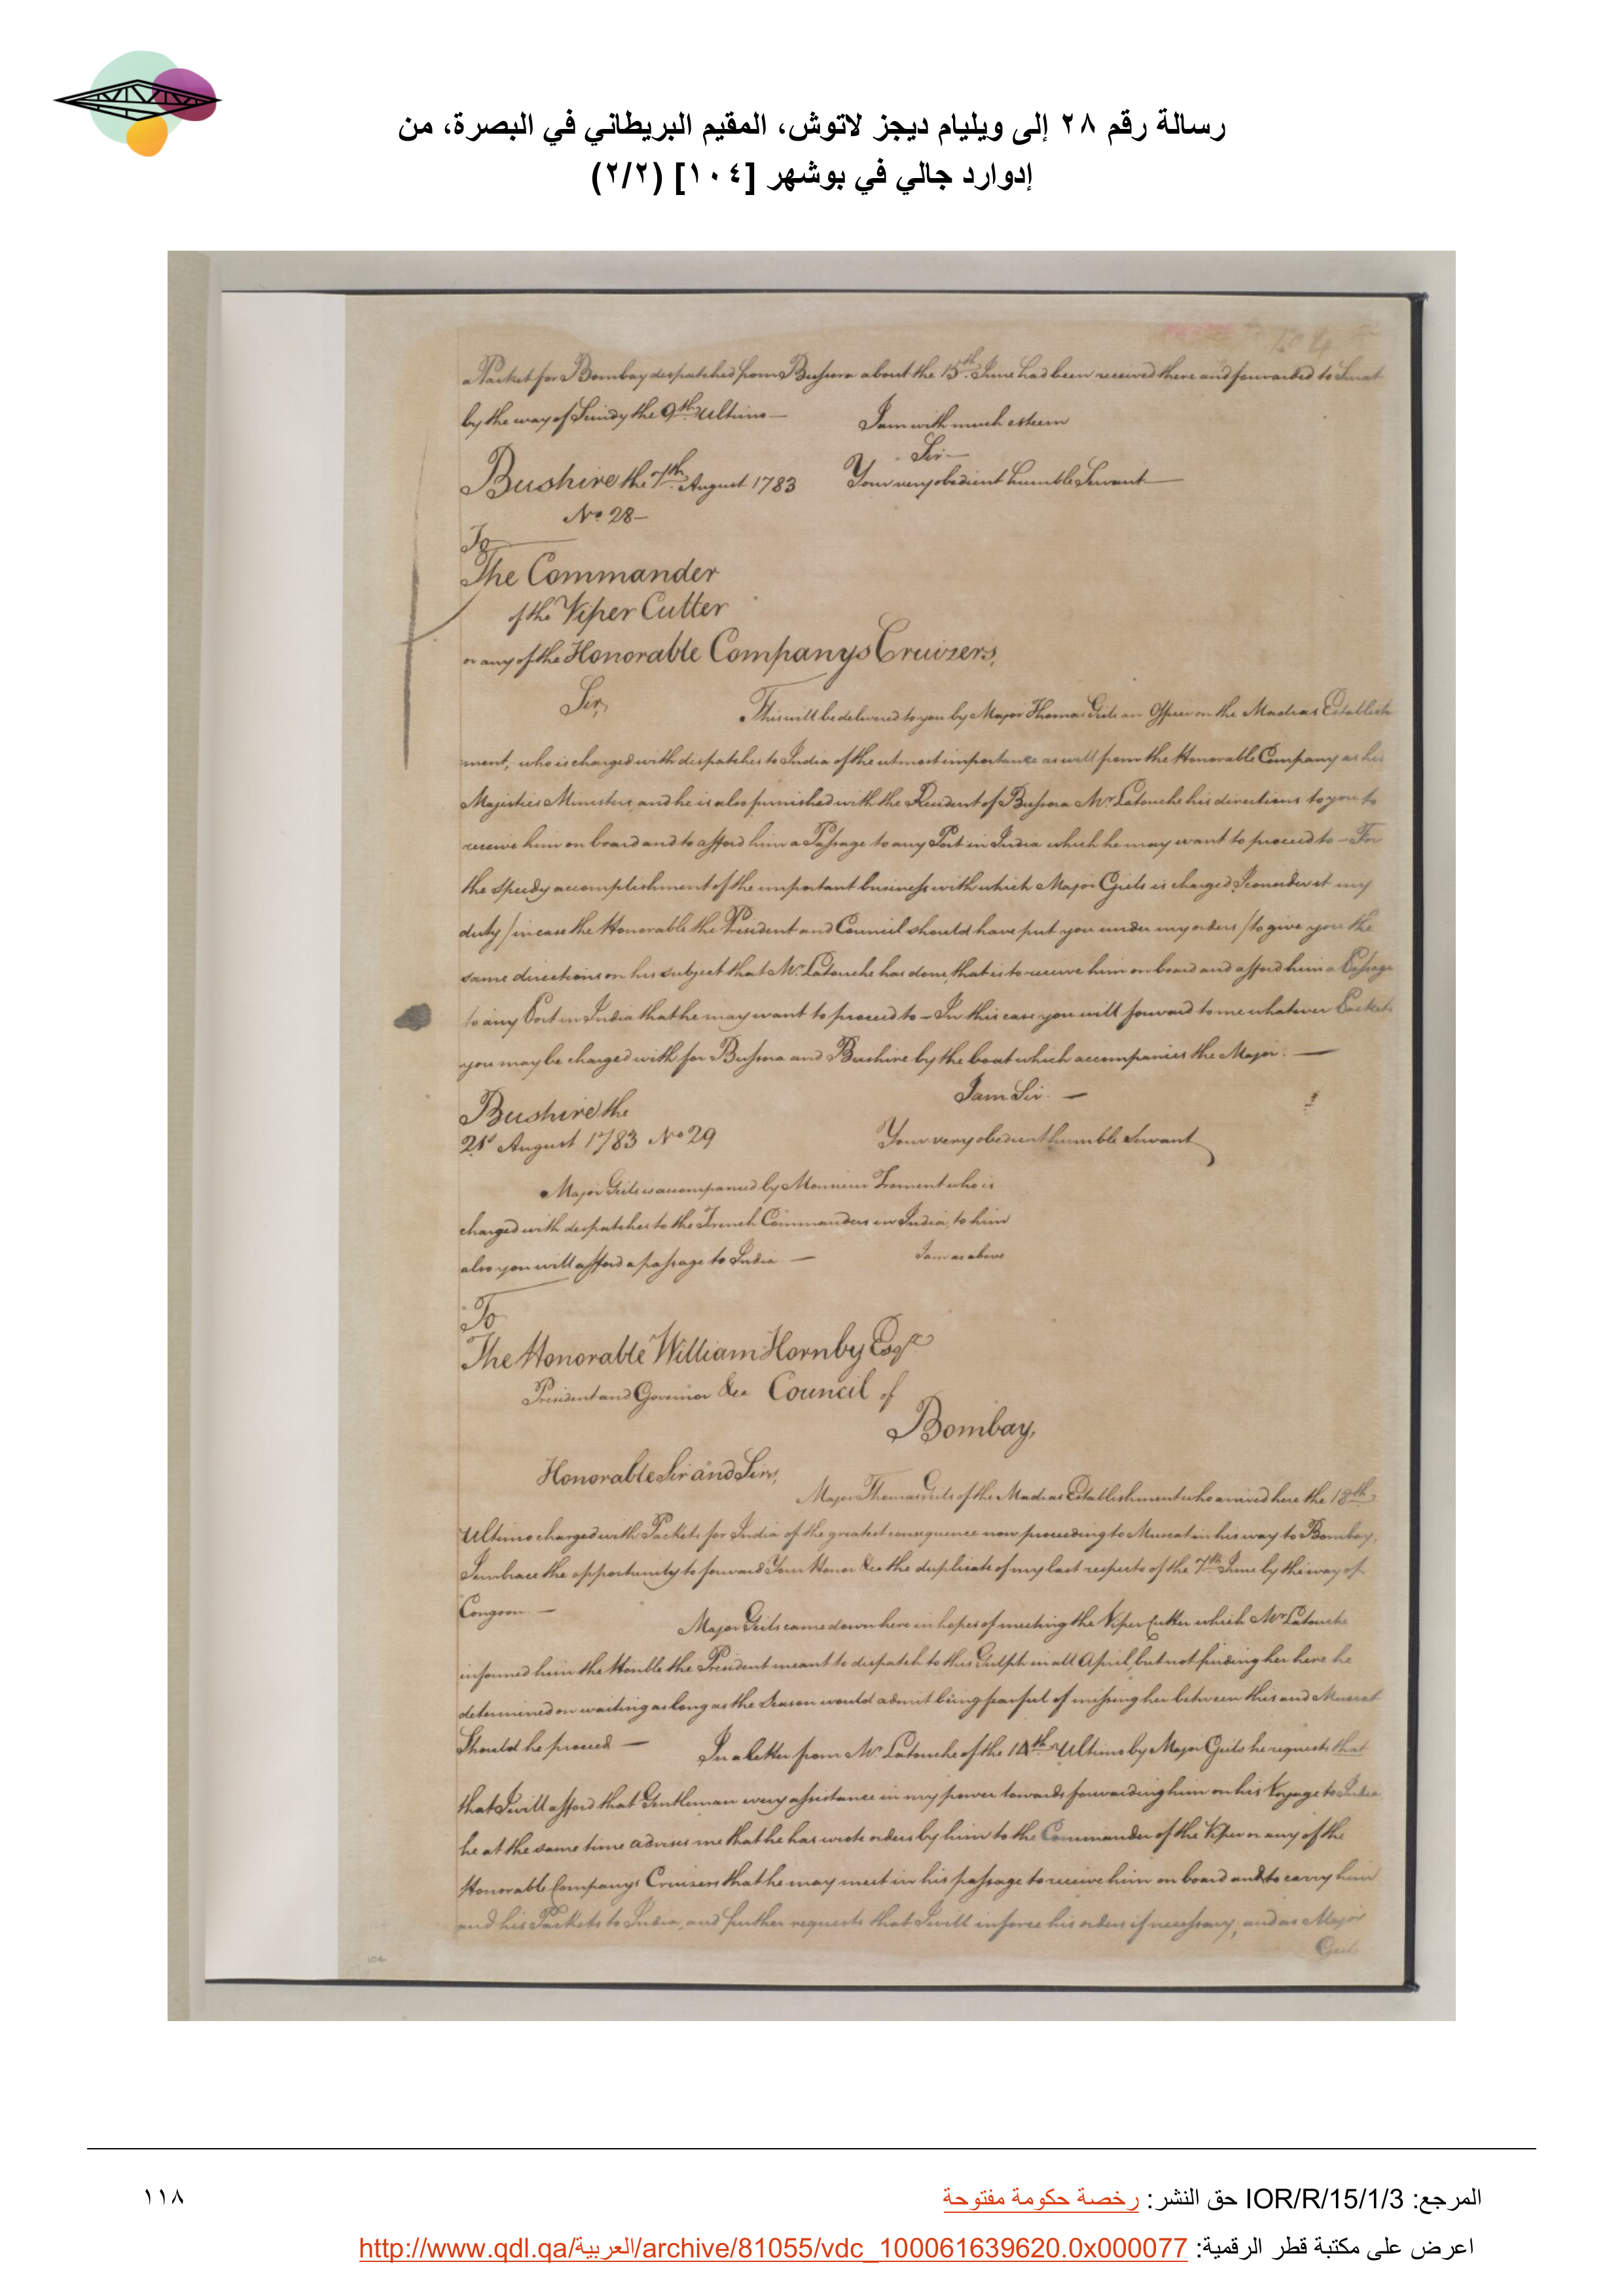 رسالة رقم ٢٨ إلى ويليام ديجز لاتوش، المقيم البريطاني في البصرة، من
إدوارد جالي في بوشهر [١٠٤] (٢/٢)
104
a Packet for Bombay despatched from Bussora about the 15th. June had been received there and forwarded to Surat
by the way of Scindy the 9th Ultimo —
I am with much esteem
Sir —
Bushire the 7th. August 1783
Your very obedient humble Servant
No 28 —
To
The Commander
of the Viper Cutter
or any of the Honorable Companys Cruizers,
Sir,
This will be delivered to you by Major Thomas Geils an Officer on the Madras Establish
ment, who is charged with dispatches to India of the utmost importance as well from the Honorable Company as his
Majesties Ministers, and he is also furnished with the Resident of Bussora Mr. Latouche his directions to you to
receive him on board and to afford him a Passage to any Port in India which he may want to proceed to — For
the speedy accomplishment of the important business with which Major Geils is charged I consider it my
duty / in case the Honorable the President and Council should have put you under my orders / to give you the
same directions on his subject that Mr. Latouche has done, that is to receive him on board and afford him a Passage
to any Port in India that he may want to proceed to — In this case you will forward to me whatever Packets
you may be charged with for Bussora and Bushire by the boat which accompanies the Major. —
I am Sir. —
Bushire the
21st August 1783 No 29
Your very obedient humble Servant
Major Geils is accompanied by Monsieur Froment who is
charged with despatches to the French Commanders in India, to him
also you will afford a passage to India —
I am as above
To
The Honorable William Hornby Esqr.
President and Governor &ca Council of
Bombay,
Honorable Sir and Sirs,
Major Thomas Geils of the Madras Establishment who arrived here the 18th
Ultimo charged with Packets for India of the greatest consequence now proceeding to Muscat in his way to Bombay,
I embrace the opportunity to forward Your Honor &ca the duplicate of my last respects of the 7th June by the way of
Congoon —
Major Geils came down here in hopes of meeting the Viper Cutter which Mr Latouche
informed him the Honble the President meant to dispatch to this Gulph in all April, but not finding her here he
determined on waiting as long as the Season would admit being fearful of missing her between this and Muscat
Should he proceed —
In a letter from Mr. Latouche of the 14th Ultimo by Major Geils he requests that
that I will afford that Gentleman every assistance in my power towards forwarding him on his Voyage to India
he at the same time advises me that he has wrote orders by him to the Commander of the Viper or any of the
Honorable Companys Cruizers that he may meet in his passage to receive him on board and to carry him
and his Packets to India, and further requests that I will inforce his orders if necessary, and as Major
Geils
104
المرجع: IOR/R/15/1/3 حق النشر: رخصة حكومة مفتوحة
١١٨
اعرض على مكتبة قطر الرقمية: http://www.qdl.qa/العربية/archive/81055/vdc_100061639620.0x000077